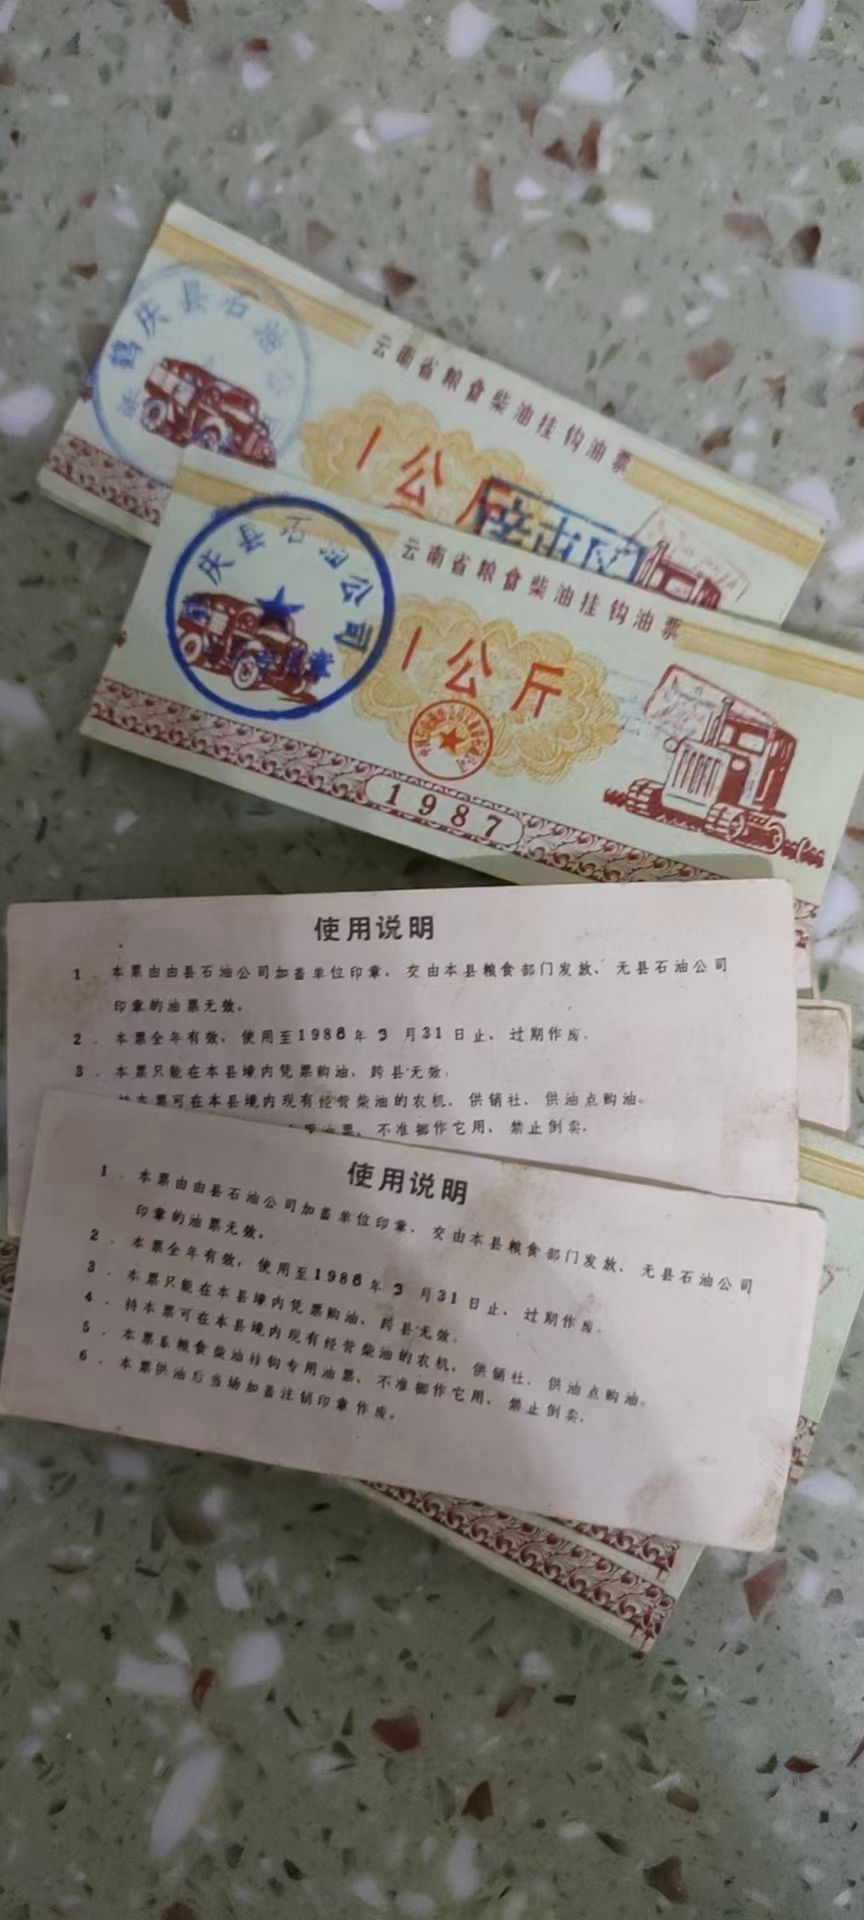 鹤庆县石油
云南省粮食柴油挂钩油票
1公斤
庆县石油公司
云南省粮食柴油挂钩油票
1公斤
1987
使用说明
1 本票由由县石油公司加盖单位印章，交由本县粮食部门发放、无县石油公司
印章的油票无效。
2．本票全年有效，使用至1988年3月31日止、过期作废．
3．本票只能在本县境内凭票购油、跨县无效．
持本票可在本县境内现有经营柴油的农机、供销社、供油点购油。
油票、不准挪作它用、禁止倒卖．
使用说明
1．本票由由县石油公司加盖单位印章．交由本县粮食部门发放、无县石油公司
印章的油票无效。
2．本票全年有效，使用至1988年3月31日止、过期作废．
3．本票只能在本县境内凭票购油、跨县无效．
4．持本票可在本县境内现有经营柴油的农机、供销社、供油点购油。
5．本票系粮食柴油挂钩专用油票、不准挪作它用、禁止倒卖．
6．本票供油后当场加盖注销印章作废。